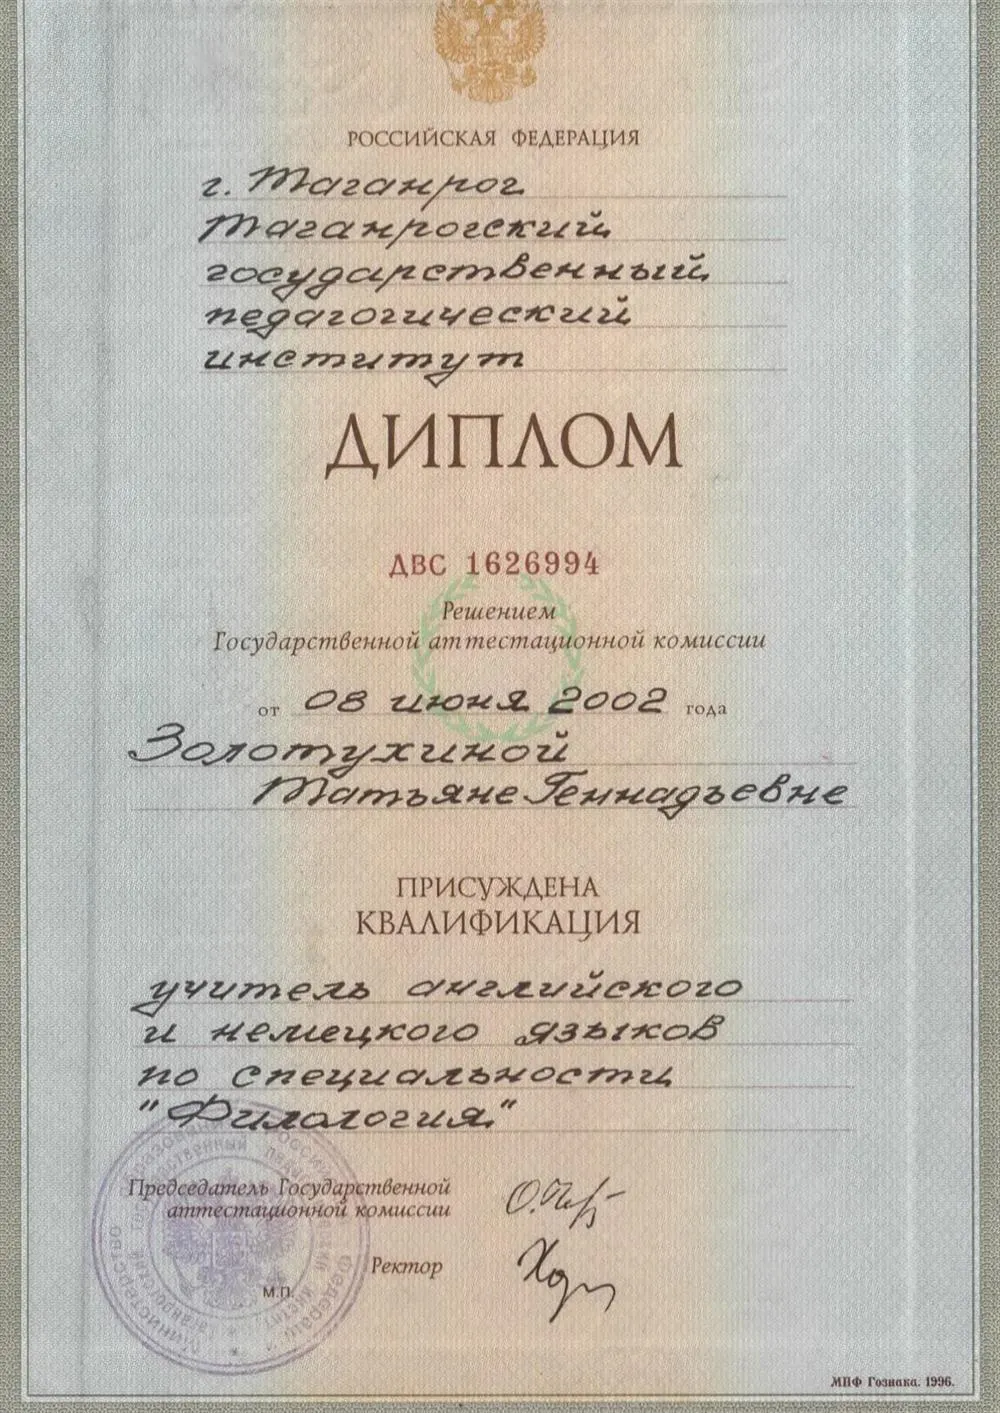 РОССИЙСКАЯ ФЕДЕРАЦИЯ
г. Таганрог
Таганрогский
государственный
педагогический
институт
ДИПЛОМ
ДВС 1626994
Решением
Государственной аттестационной комиссии
от 08 июня 2002 года
Золотухиной
Татьяне Геннадьевне
ПРИСУЖДЕНА
КВАЛИФИКАЦИЯ
учитель английского
и немецкого языков
по специальности
"Филология"
Председатель Государственной
аттестационной комиссии
Ректор
М.П.
МПФ Гознака. 1996.